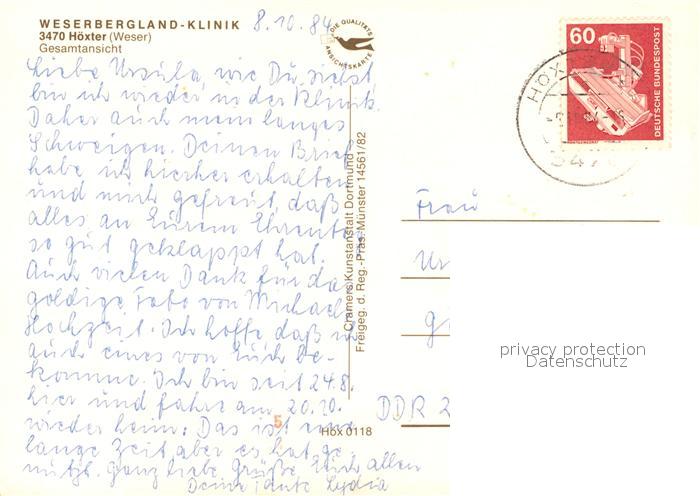 WESERBERGLAND-KLINIK
3470 Höxter (Weser)
Gesamtansicht
8.10.84
DIE QUALITÄTS
ANSICHTSKARTE
60
DEUTSCHE BUNDESPOST
HÖX
347
Liebe Ursula, wie Du siehst
bin ich wieder in der Klinik
Daher auch mein langes
Schweigen. Deinen Brief
habe ich hierher erhalten
und mich gefreut, daß
alles an Eurem Ehrent
so gut geklappt hat.
Auch vielen Dank für da
goldige Foto von Michael
Hochzeit. Ich hoffe daß
auch eines von Euch be-
komme. Ich bin seit 24.8.
hier und fahre am 20.10.
wieder heim. Das ist eine
lange Zeit aber es hat ge
nützt. ganz liebe Grüße Euch allen
Deine Tante Lydia
Cramers Kunstanstalt Dortmund
Freigeg. d. Reg.-Präs. Münster 14561/82
Frau
Ur
DDR 2
5
Höx 0118
privacy protection
Datenschutz